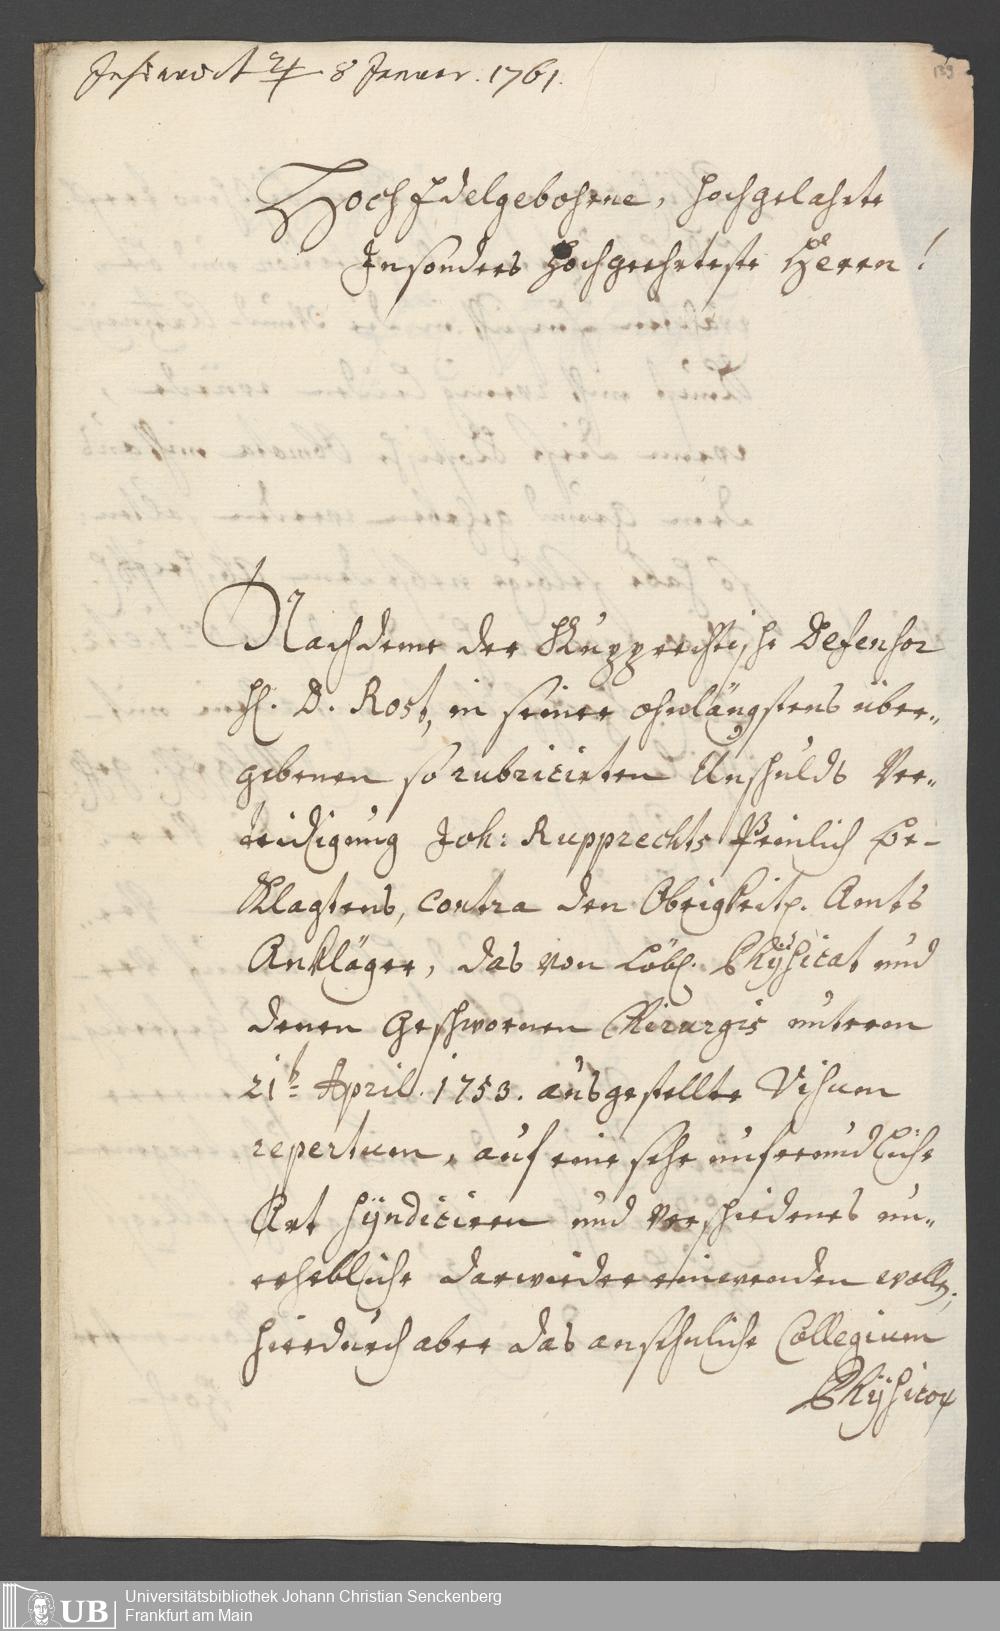 Insinuirt ♃ 8 Januar. 1761.
139
HochEdelgebohrne, hochgelahrte
Insonders hochgeehrteste Herrn!
Nachdeme der Rupprechtische Defensor
H. D. Rost, in seiner ohnlängstens über-
gebenen so rubricirten Unschulds Ver-
teidigung Joh: Rupprechts Peinlich be-
klagtens, contra den Obrigkeitl. Amts
Ankläger, das von Löbl. Physicat und
denen Geschwornen Chirurgis unterm
21t April. 1753. ausgestellte Visum
repertum, auf eine sehr unfreundliche
Art syndiciren und verschiedenes un-
erhebliche darwieder einwenden wolle,
hierdurch aber das ansehnliche Collegium
Physicor
UB
Universitätsbibliothek Johann Christian Senckenberg
Frankfurt am Main